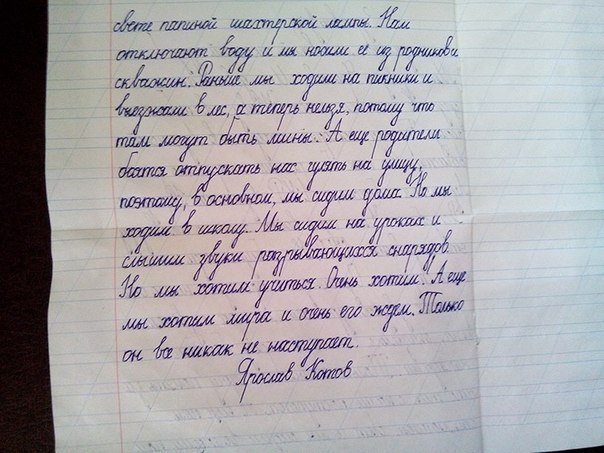 свете папиной шахтерской лампы. Нам
отключают воду и мы носим ее из родников и
скважин. Раньше мы ходили на пикники и
выезжали в лес, а теперь нельзя, потому что
там могут быть мины. А еще родители
боятся отпускать нас гулять на улицу,
поэтому, в основном, мы сидим дома. Но мы
ходим в школу. Мы сидим на уроках и
слышим звуки разрывающихся снарядов.
Но мы хотим учиться. Очень хотим! А еще
мы хотим мира и очень его ждем. Только
он все никак не наступает.
Ярослав Котов